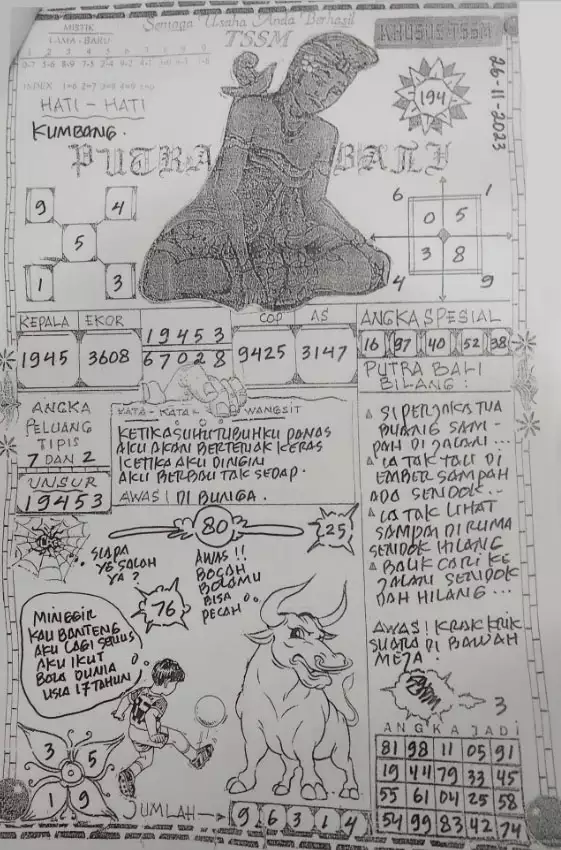 Semoga Usaha Anda Berhasil
MISTIK
LAMA - BARU
TSSM
KHUSUS TSSM
1 2 3 4 5 6 7 8 9 0
INDEX
HATI - HATI
KUMBANG.
194
26-11-2023
PUTRA BALI
9 4
5
1 3
6 1
0 5
3 8
4 9
KEPALA EKOR
1945 3608
19453
67028
COP AS
9425 3147
ANGKA SPESIAL
16 97 40 52 38
PUTRA BALI
BILANG :
SI PERJAKA TUA
BUANG SAM -
PAH DI JALAN ...
IA TAK TAU DI
EMBER SAMPAH
ADA SENDOK ...
IA TAK LIHAT
SAMPAI DI RUMA
SENDOK HILANG
BALIK CARI KE
JALAN SENDOK
DAH HILANG ...
AWAS ! KRAK KRIK
SUARA DI BAWAH
MEJA.
ANGKA
PELUANG
TIPIS
7 DAN 2
UNSUR
19453
KATA - KATA - WANGSIT
KETIKA SUHU TUBUHKU PANAS
AKU AKAN BERTERIAK KERAS
KETIKA AKU DINGIN
AKU BERBAU TAK SEDAP.
AWAS ! DI BUNGA.
80
25
SIAPA
YG SALAH
YA ?
76
AWAS !!
BOCAH
BOLAMU
BISA
PECAH
MINGGIR
KAU BANTENG
AKU LAGI SERIUS
AKU IKUT
BOLA DUNIA
USIA 17 TAHUN
17
3 5
1 9
JUMLAH → 9 6 3 1 4
3
ANGKA JADI
81 98 11 05 91
19 44 79 33 45
55 61 04 25 58
54 99 83 42 74